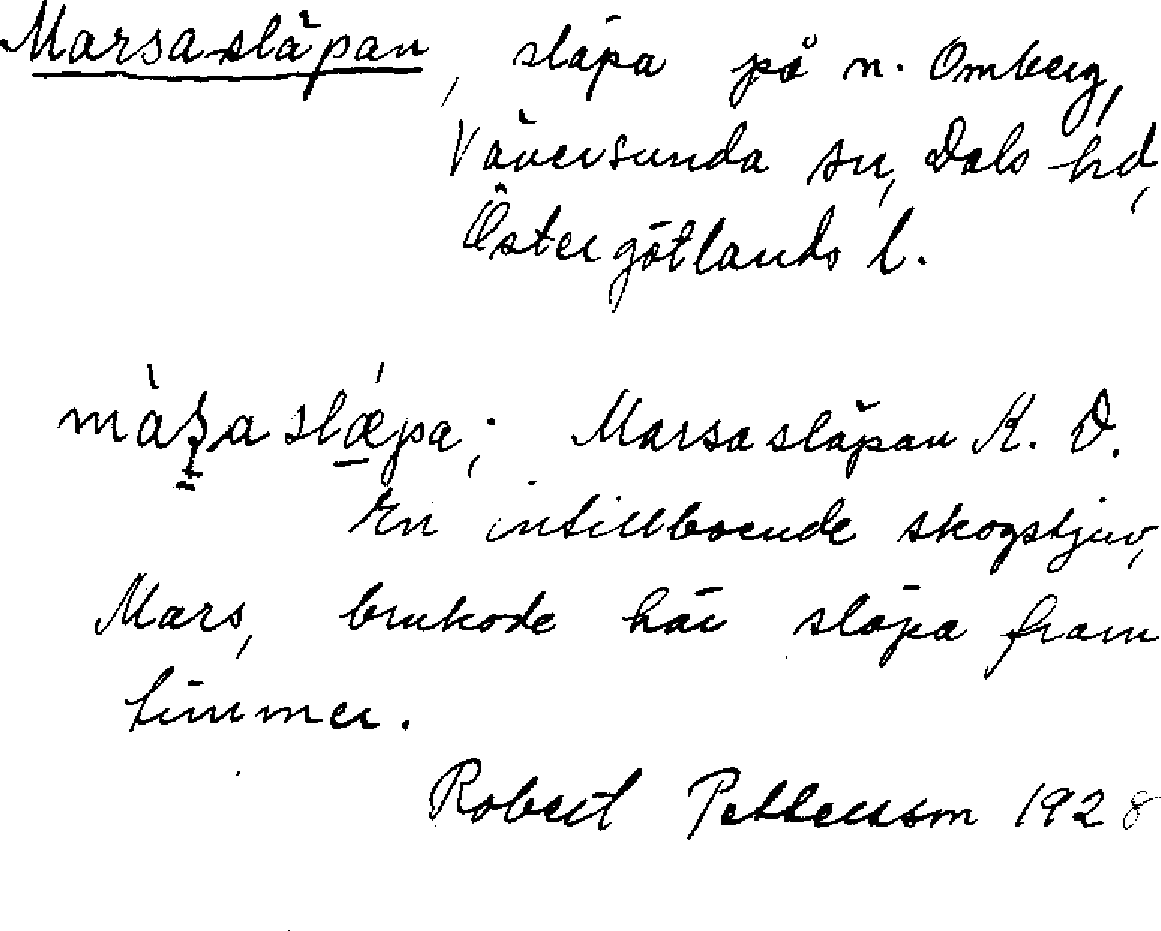 Marsasläpan, släpa på n. Omberg,
Väversunda sn, Dals hd,
Östergötlands l.
Marsasläpan K. D.
En intillboende skogstjuv,
Mars, brukade här släpa fram
timmer.
Robert Pettersson 1928